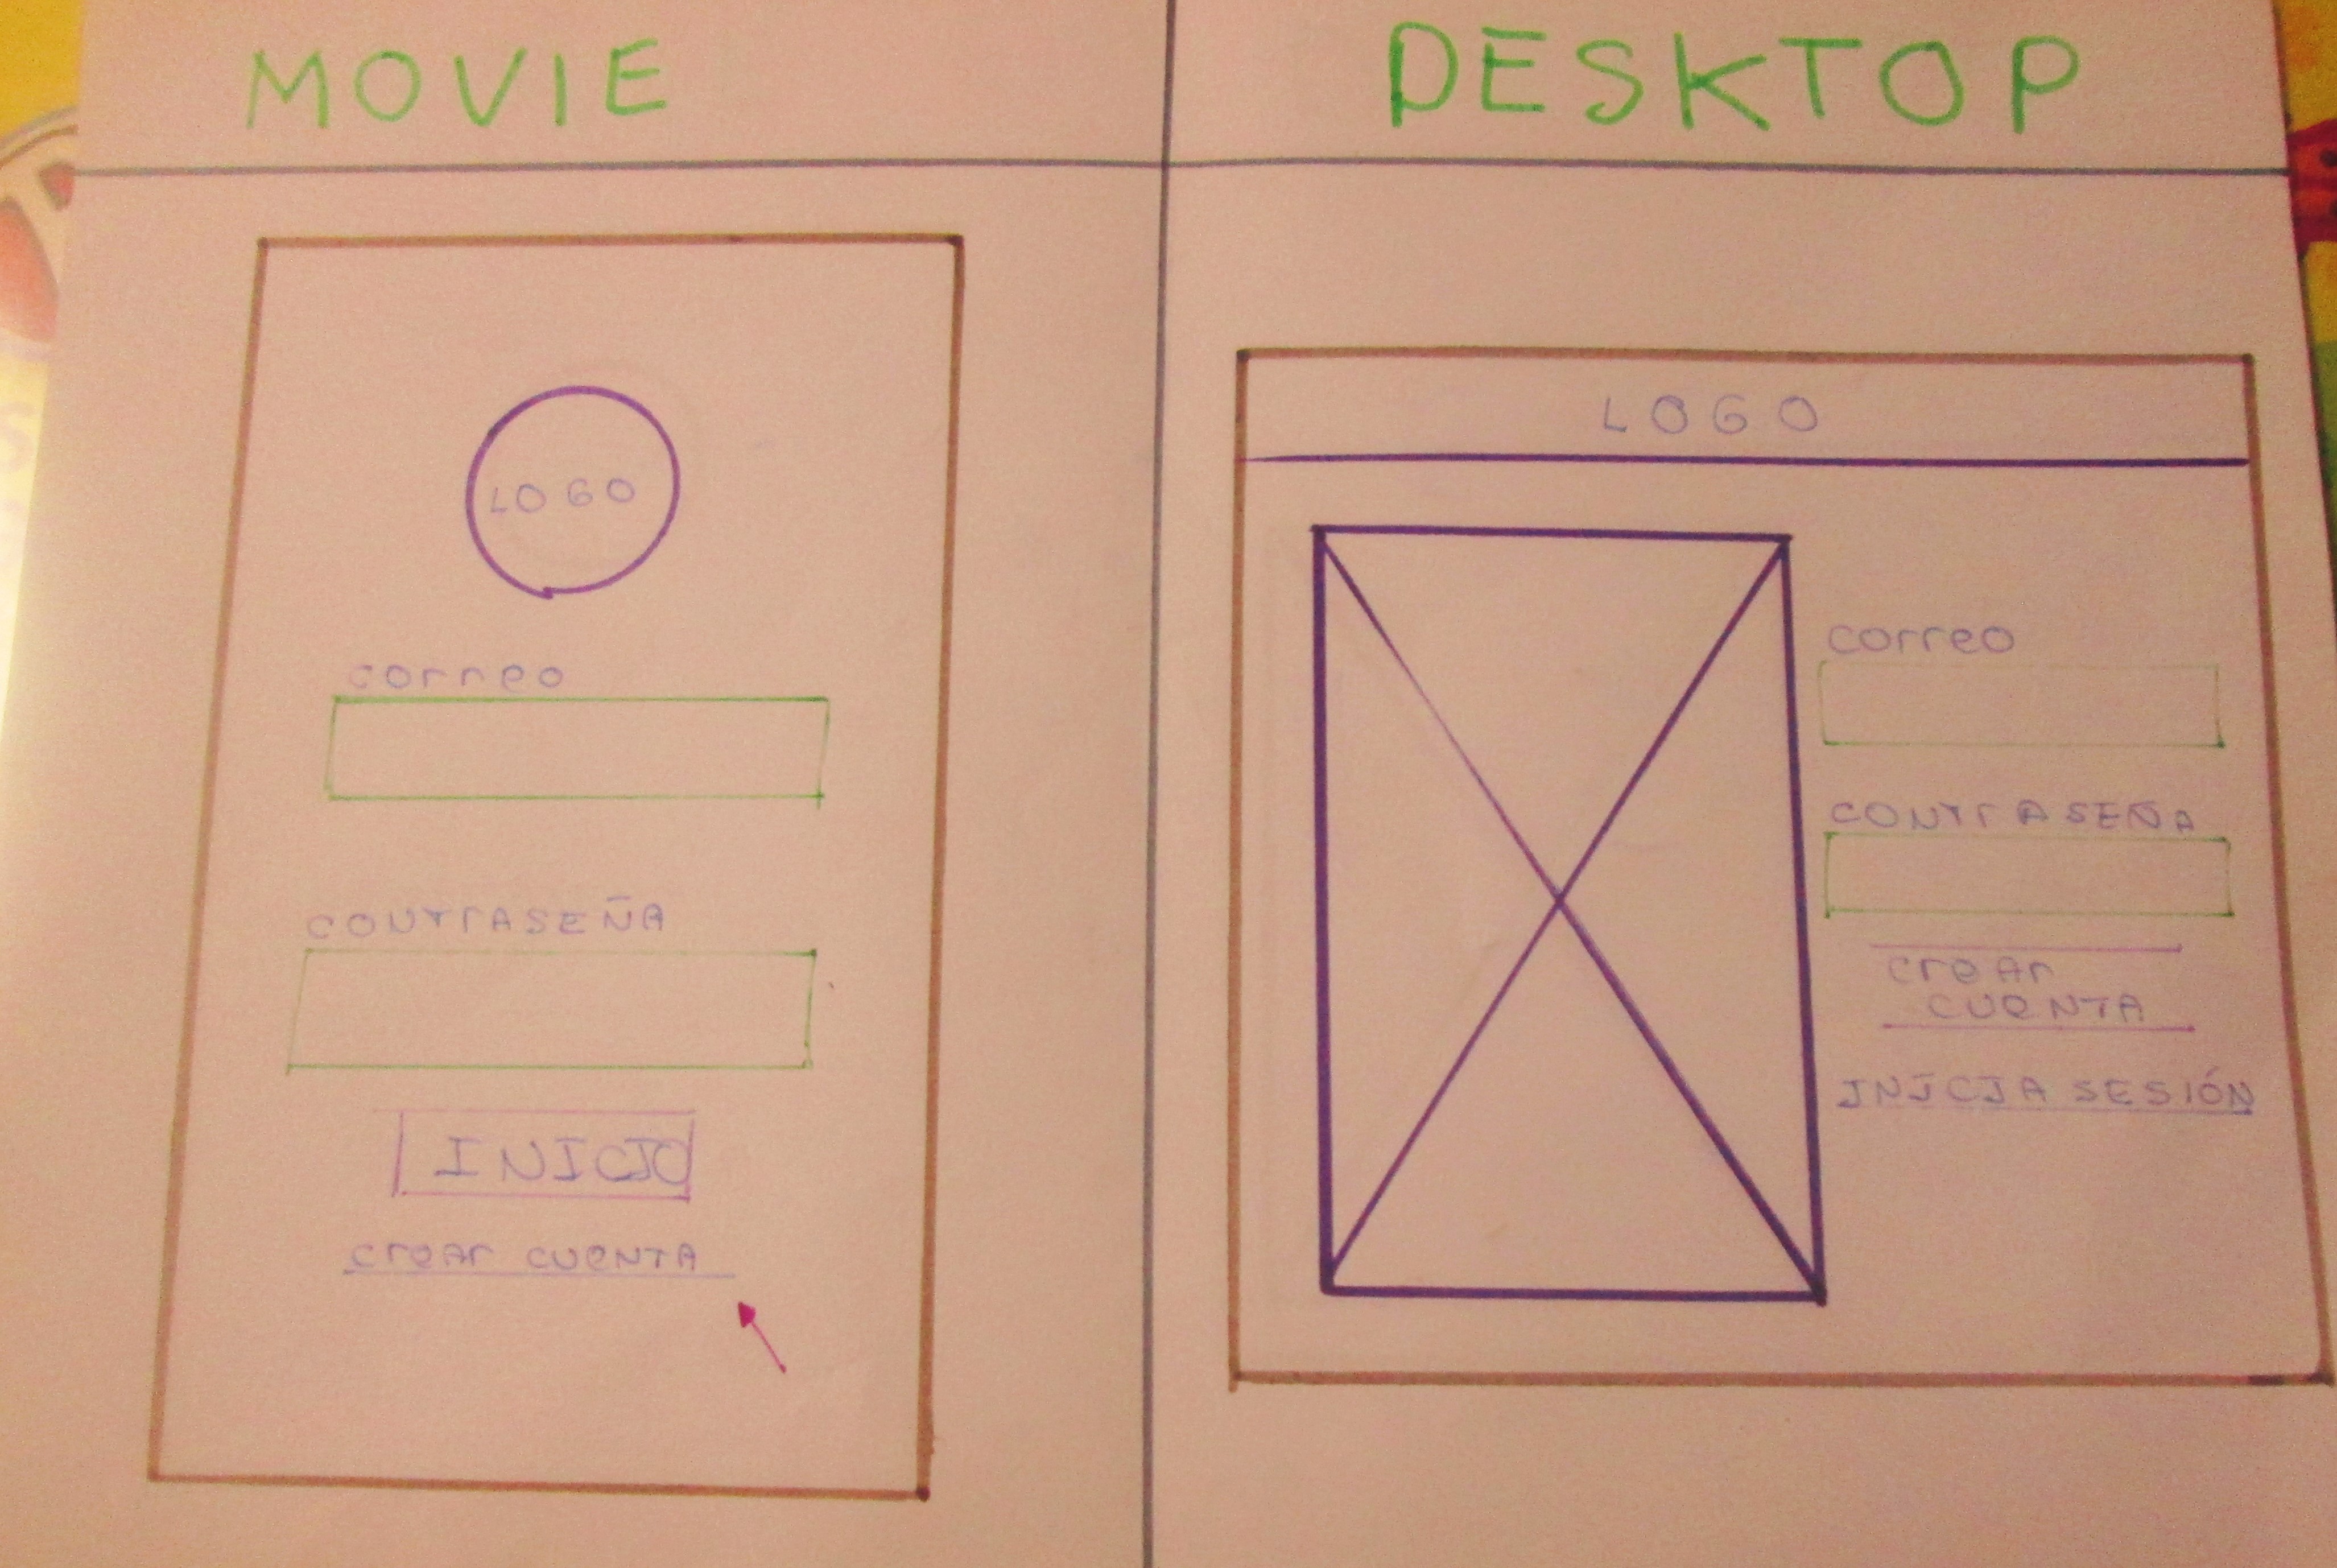 MOVIE
LOGO
correo
CONTrASEÑA
INICIO
CreAr CUeNTA
DESKTOP
LOGO
correo
CONTrASEÑA
CreAr
CUeNTA
INICIA SESIÓN